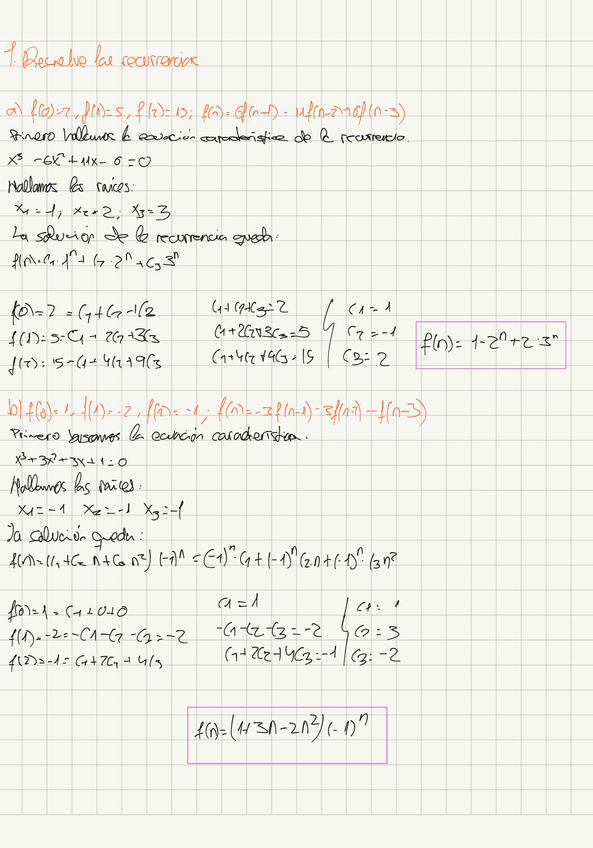 1. Resuelve las recurrencias
a) f(0)=2, f(1)=5, f(2)=15; f(n)=6f(n-1) - 11f(n-2)+6f(n-3)
Primero hallamos la ecuación característica de la recurrencia.
x³ - 6x² + 11x - 6 = 0
Hallamos las raíces:
x₁ = 1; x₂ = 2; x₃ = 3
La solución de la recurrencia queda:
f(n) = C₁·1ⁿ + C₂·2ⁿ + C₃3ⁿ
f(0)=2 = C₁+C₂+C₃ C₁+C₂+C₃=2 C₁ = 1
f(1)=5=C₁+2C₂+3C₃ C₁+2C₂+3C₃=5 C₂ = -1
f(2)=15=C₁+4C₂+9C₃ C₁+4C₂+9C₃=15 C₃ = 2
f(n) = 1-2ⁿ+2·3ⁿ
b) f(0)=1, f(1)=-2, f(2)=-1; f(n)=-3f(n-1)-3f(n-2)-f(n-3)
Primero buscamos la ecuación característica.
x³+3x²+3x+1=0
Hallamos las raíces:
x₁=-1 x₂=-1 x₃=-1
La solución queda:
f(n)=(C₁+C₂n+C₃n²)(-1)ⁿ = (-1)ⁿ·C₁+(-1)ⁿC₂·n+(-1)ⁿ·C₃n²
f(0)=1=C₁+0+0 C₁=1 C₁=1
f(1)=-2=-C₁-C₂-C₃=-2 -C₁-C₂-C₃=-2 C₂=3
f(2)=-1=C₁+2C₂+4C₃ C₁+2C₂+4C₃=-1 C₃=-2
f(n)=(1+3n-2n²)(-1)ⁿ